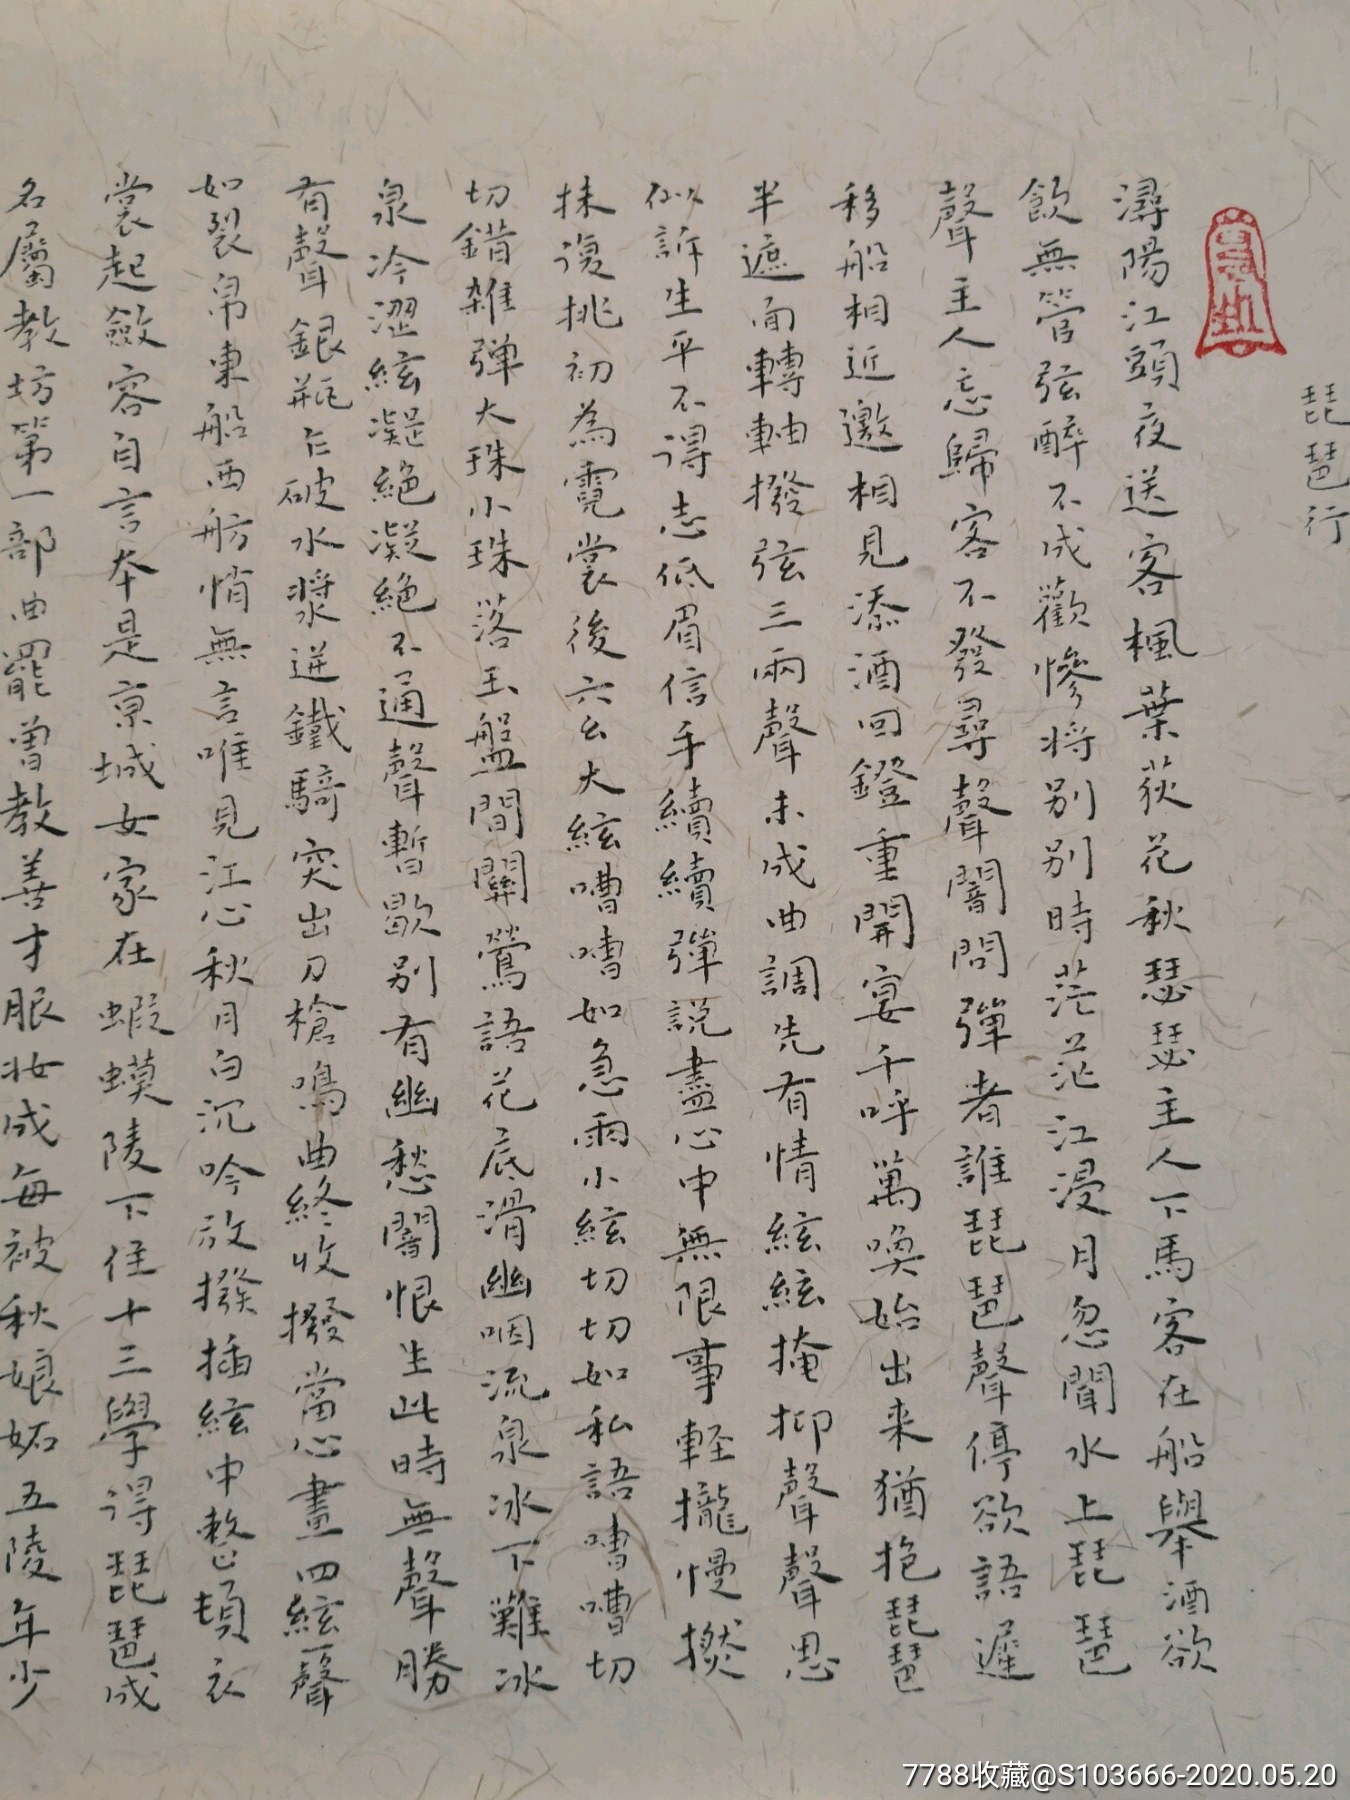 琵琶行
潯陽江頭夜送客楓葉荻花秋瑟瑟主人下馬客在船舉酒欲
飲無管弦醉不成歡慘将别别時茫茫江浸月忽聞水上琵琶
聲主人忘歸客不發尋聲闇問彈者誰琵琶聲停欲語遲
移船相近邀相見添酒回鐙重開宴千呼萬喚始出来猶抱琵琶
半遮面轉軸撥弦三兩聲未成曲調先有情絃絃掩抑聲聲思
似訴生平不得志低眉信手續續彈説盡心中無限事輕攏慢撚
抹復挑初為霓裳後六幺大絃嘈嘈如急雨小絃切切如私語嘈嘈切
切錯雜弹大珠小珠落玉盤間關鶯語花底滑幽咽流泉冰下難冰
泉冷澀絃凝絕凝絕不通聲暫歇别有幽愁闇恨生此時無聲勝
有聲銀瓶乍破水漿迸鐵騎突出刀槍鳴曲終收撥當心畫四絃一聲
如裂帛東船西舫悄無言唯見江心秋月白沉吟放撥插絃中整頓衣
裳起斂容自言本是京城女家在蝦蟆陵下住十三學得琵琶成
名屬教坊第一部曲罷曾教善才服妝成每被秋娘妬五陵年少
7788收藏@S103666-2020.05.20